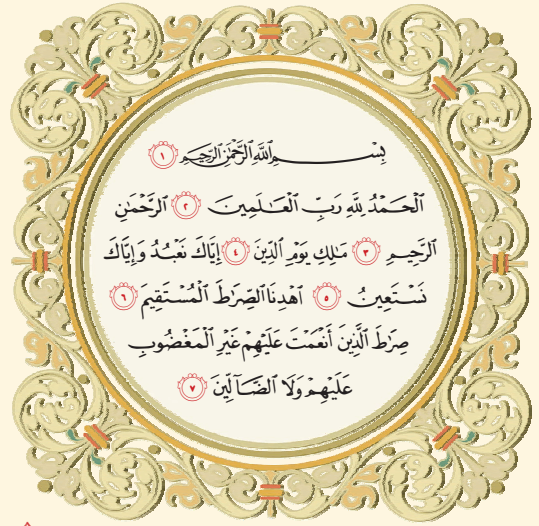 بِسْمِ ٱللَّهِ ٱلرَّحْمَٰنِ ٱلرَّحِيمِ ١
ٱلْحَمْدُ لِلَّهِ رَبِّ ٱلْعَـٰلَمِينَ ٢ ٱلرَّحْمَٰنِ
ٱلرَّحِيمِ ٣ مَٰلِكِ يَوْمِ ٱلدِّينِ ٤ إِيَّاكَ نَعْبُدُ وَإِيَّاكَ
نَسْتَعِينُ ٥ ٱهْدِنَا ٱلصِّرَٰطَ ٱلْمُسْتَقِيمَ ٦
صِرَٰطَ ٱلَّذِينَ أَنْعَمْتَ عَلَيْهِمْ غَيْرِ ٱلْمَغْضُوبِ
عَلَيْهِمْ وَلَا ٱلضَّآلِّينَ ٧